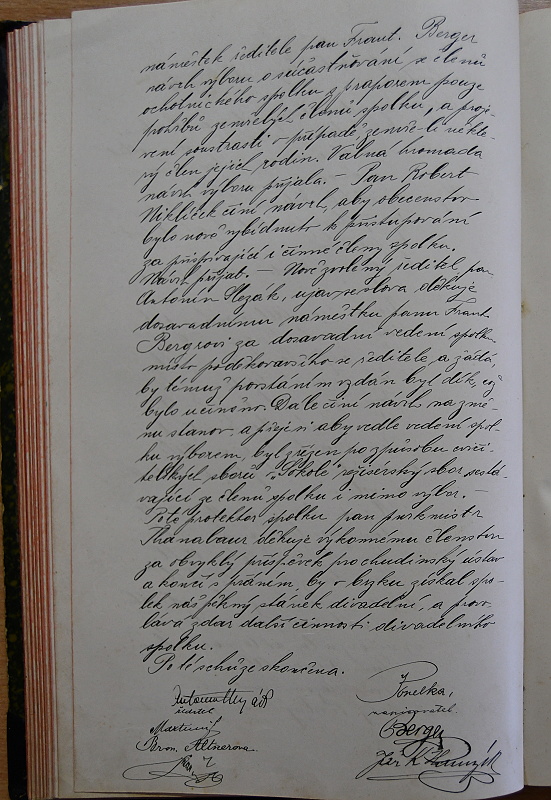 náměstek ředitele pan Frant. Berger
návrh výboru o súčastňování se členů
ochotnického spolku s praporem pouze
pohřbů zemřelých členů spolku, a proje-
vení soustrasti v případě, zemře-li někte-
rý člen jejich rodin. Valná hromada
návrh výboru přijala. – Pan Robert
Niklíček činí návrh, aby obecenstvo
bylo nově vybídnuto k přistupování
za přispívající i činné členy spolku.
Návrh přijat. – Nově zvolený ředitel pan
Antonín Slezák, ujav se slova děkuje
dosavadnímu náměstku panu Frant.
Bergrovi za dosavadní vedení spolku
místo poděkovavšího se ředitele, a žádá,
by témuž povstáním vzdán byl dík, což
bylo učiněno. Dále činí návrh na změ-
nu stanov, a přeje si aby vedle vedení spol-
ku výborem, byl zřízen po způsobu cviči-
telských sborů "Sokola" režiserský sbor sestá-
vající ze členů spolku i mimo výbor. –
Poté protektor spolku pan purkmistr
Thanabaur děkuje výkonnému členstvu
za obvyklý příspěvek pro chudinský ústav
a končí s přáním, by v brzku získal spo-
lek náš pěkný stánek divadelní, a provo-
lává zdar další činnosti divadelního
spolku.
Poté schůze skončena.
ředitel
Bron. Altnerova
Ponelka,
zapisovatel.
Berger